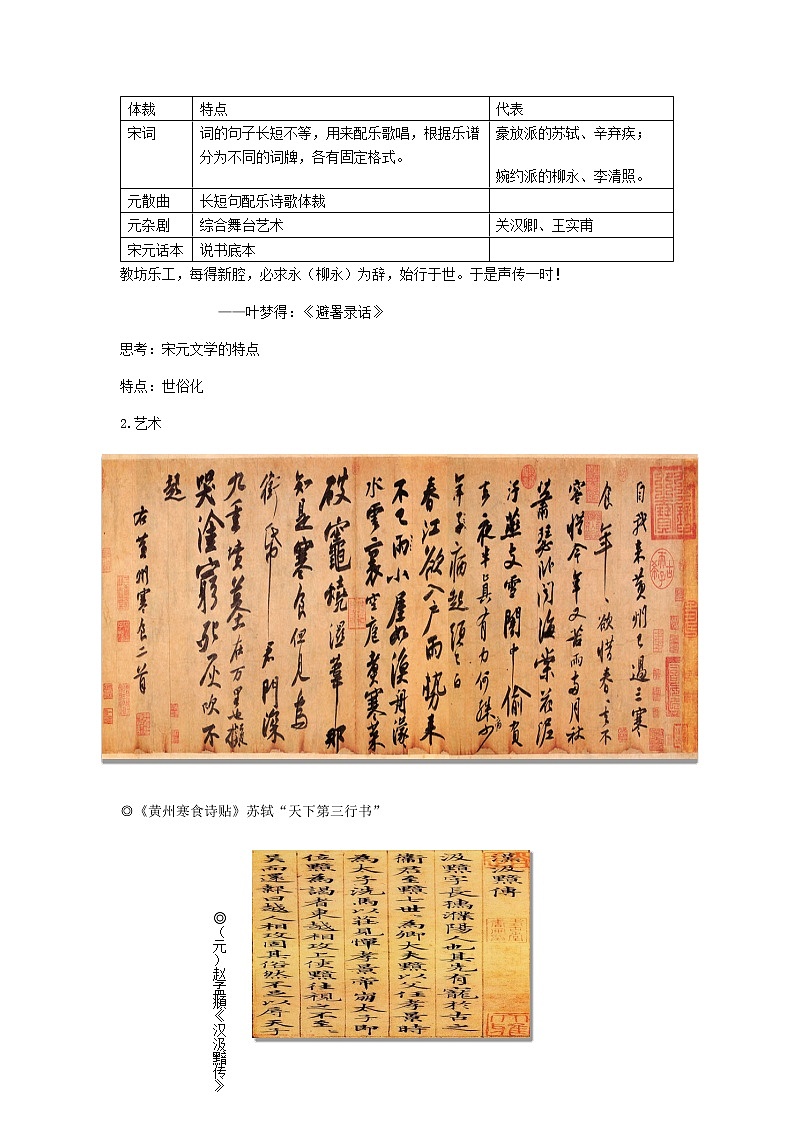 体裁 特点 代表
宋词 词的句子长短不等，用来配乐歌唱，根据乐谱 豪放派的苏轼、辛弃疾；
分为不同的词牌，各有固定格式。
婉约派的柳永、李清照。
元散曲 长短句配乐诗歌体裁
元杂剧 综合舞台艺术 关汉卿、王实甫
宋元话本 说书底本
教坊乐工，每得新腔，必求永（柳永）为辞，始行于世。于是声传一时！
——叶梦得：《避暑录话》
思考：宋元文学的特点
特点：世俗化
2.艺术
自我來黃州已過三寒
食年々欲惜春々去不
容惜今年又苦雨兩月秋
蕭瑟卧聞海棠花泥
汙燕支雪闇中偷負
去夜半真有力何殊少
年子病起須已白
春江欲入户雨勢來
不已雨小屋如漁舟濛々
水雲裏空庖煮寒菜
破竈燒濕葦那
知是寒食但見烏
銜帋君門深
九重墳墓在万里也擬
哭塗窮死灰吹不
起
右黃州寒食二首
◎《黄州寒食诗贴》苏轼“天下第三行书”
漢汲黯傳
汲黯字長孺濮陽人也其先有寵於古之
衛君至黯七世々為卿大夫黯以父任孝景時
為太子洗馬以莊見憚孝景帝崩太子即
位黯為謁者東越相攻上使黯往視之不至
吳而還報曰越人相攻固其俗然不足以辱天子
◎（元）赵孟頫《汉汲黯传》